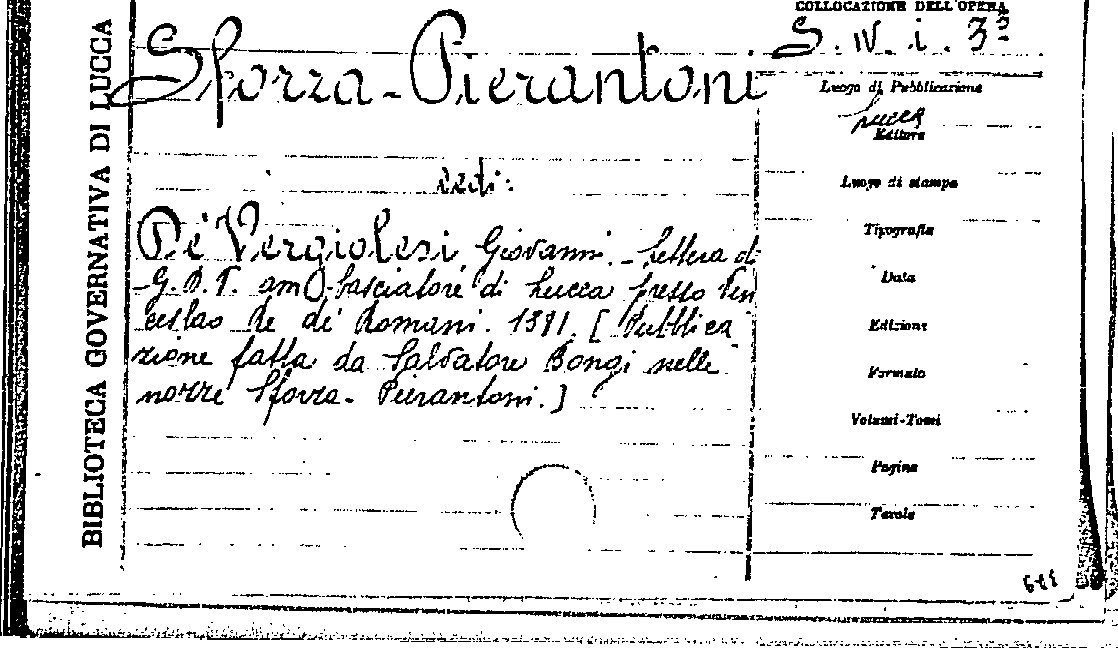 BIBLIOTECA GOVERNATIVA DI LUCCA
COLLOCAZIONE DELL'OPERA
S. IV. i. 3ª
Sforza-Pierantoni
vedi:
De' Vergiolesi Giovanni. - Lettera di
G. D. V. ambasciatore di Lucca presso Vin
ceslao Re de' Romani. 1381. [Pubblica
zione fatta da Salvatore Bongi nelle
nozze Sforza-Pierantoni.]
Luogo di Pubblicazione
Lucca
Editore
Luogo di stampa
Tipografia
Data
Edizione
Formato
Volumi-Tomi
Pagine
Tavole